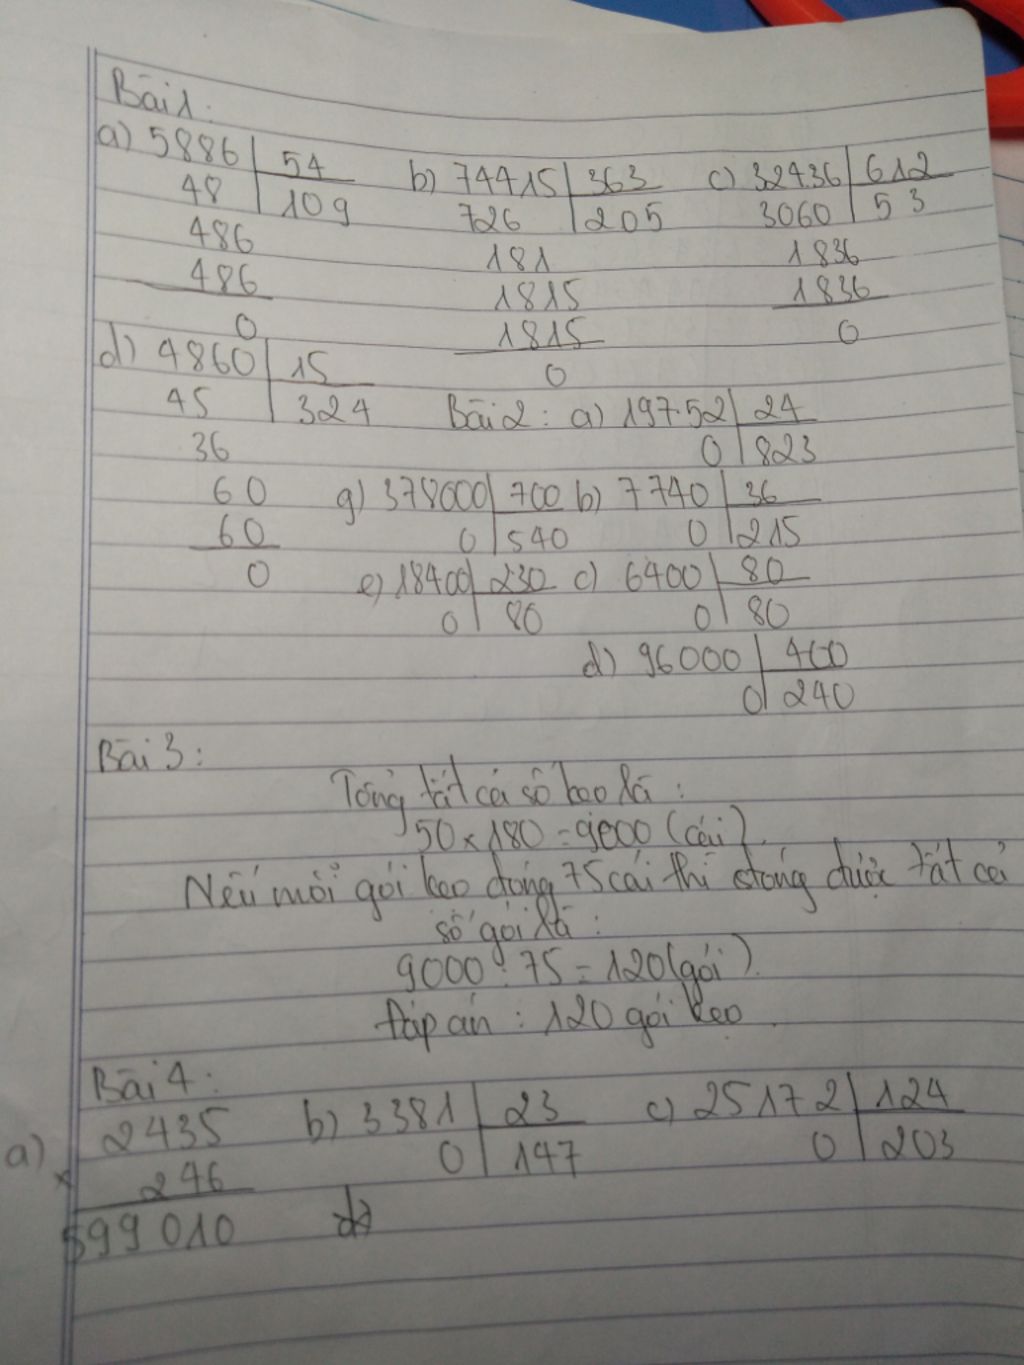 Bài 1:
a) 5886 | 54
48 | 109
486
486
0
b) 74415 | 363
726 | 205
181
1815
1815
0
c) 32436 | 612
3060 | 53
1836
1836
0
d) 4860 | 15
45 | 324
36
60
60
0
Bài 2: a) 19752 | 24
0 | 823
g) 378000 | 700
0 | 540
b) 7740 | 36
0 | 215
e) 18400 | 230
0 | 80
c) 6400 | 80
0 | 80
d) 96000 | 400
0 | 240
Bài 3:
Tổng tất cả số kẹo là:
50 x 180 = 9000 (cái).
Nếu mỗi gói kẹo đóng 75 cái thì đóng được tất cả
số gói là:
9000 : 75 = 120 (gói).
Đáp án: 120 gói kẹo.
Bài 4:
a) 2435
x 246
599010
b) 3381 | 23
0 | 147
c) 25172 | 124
0 | 203